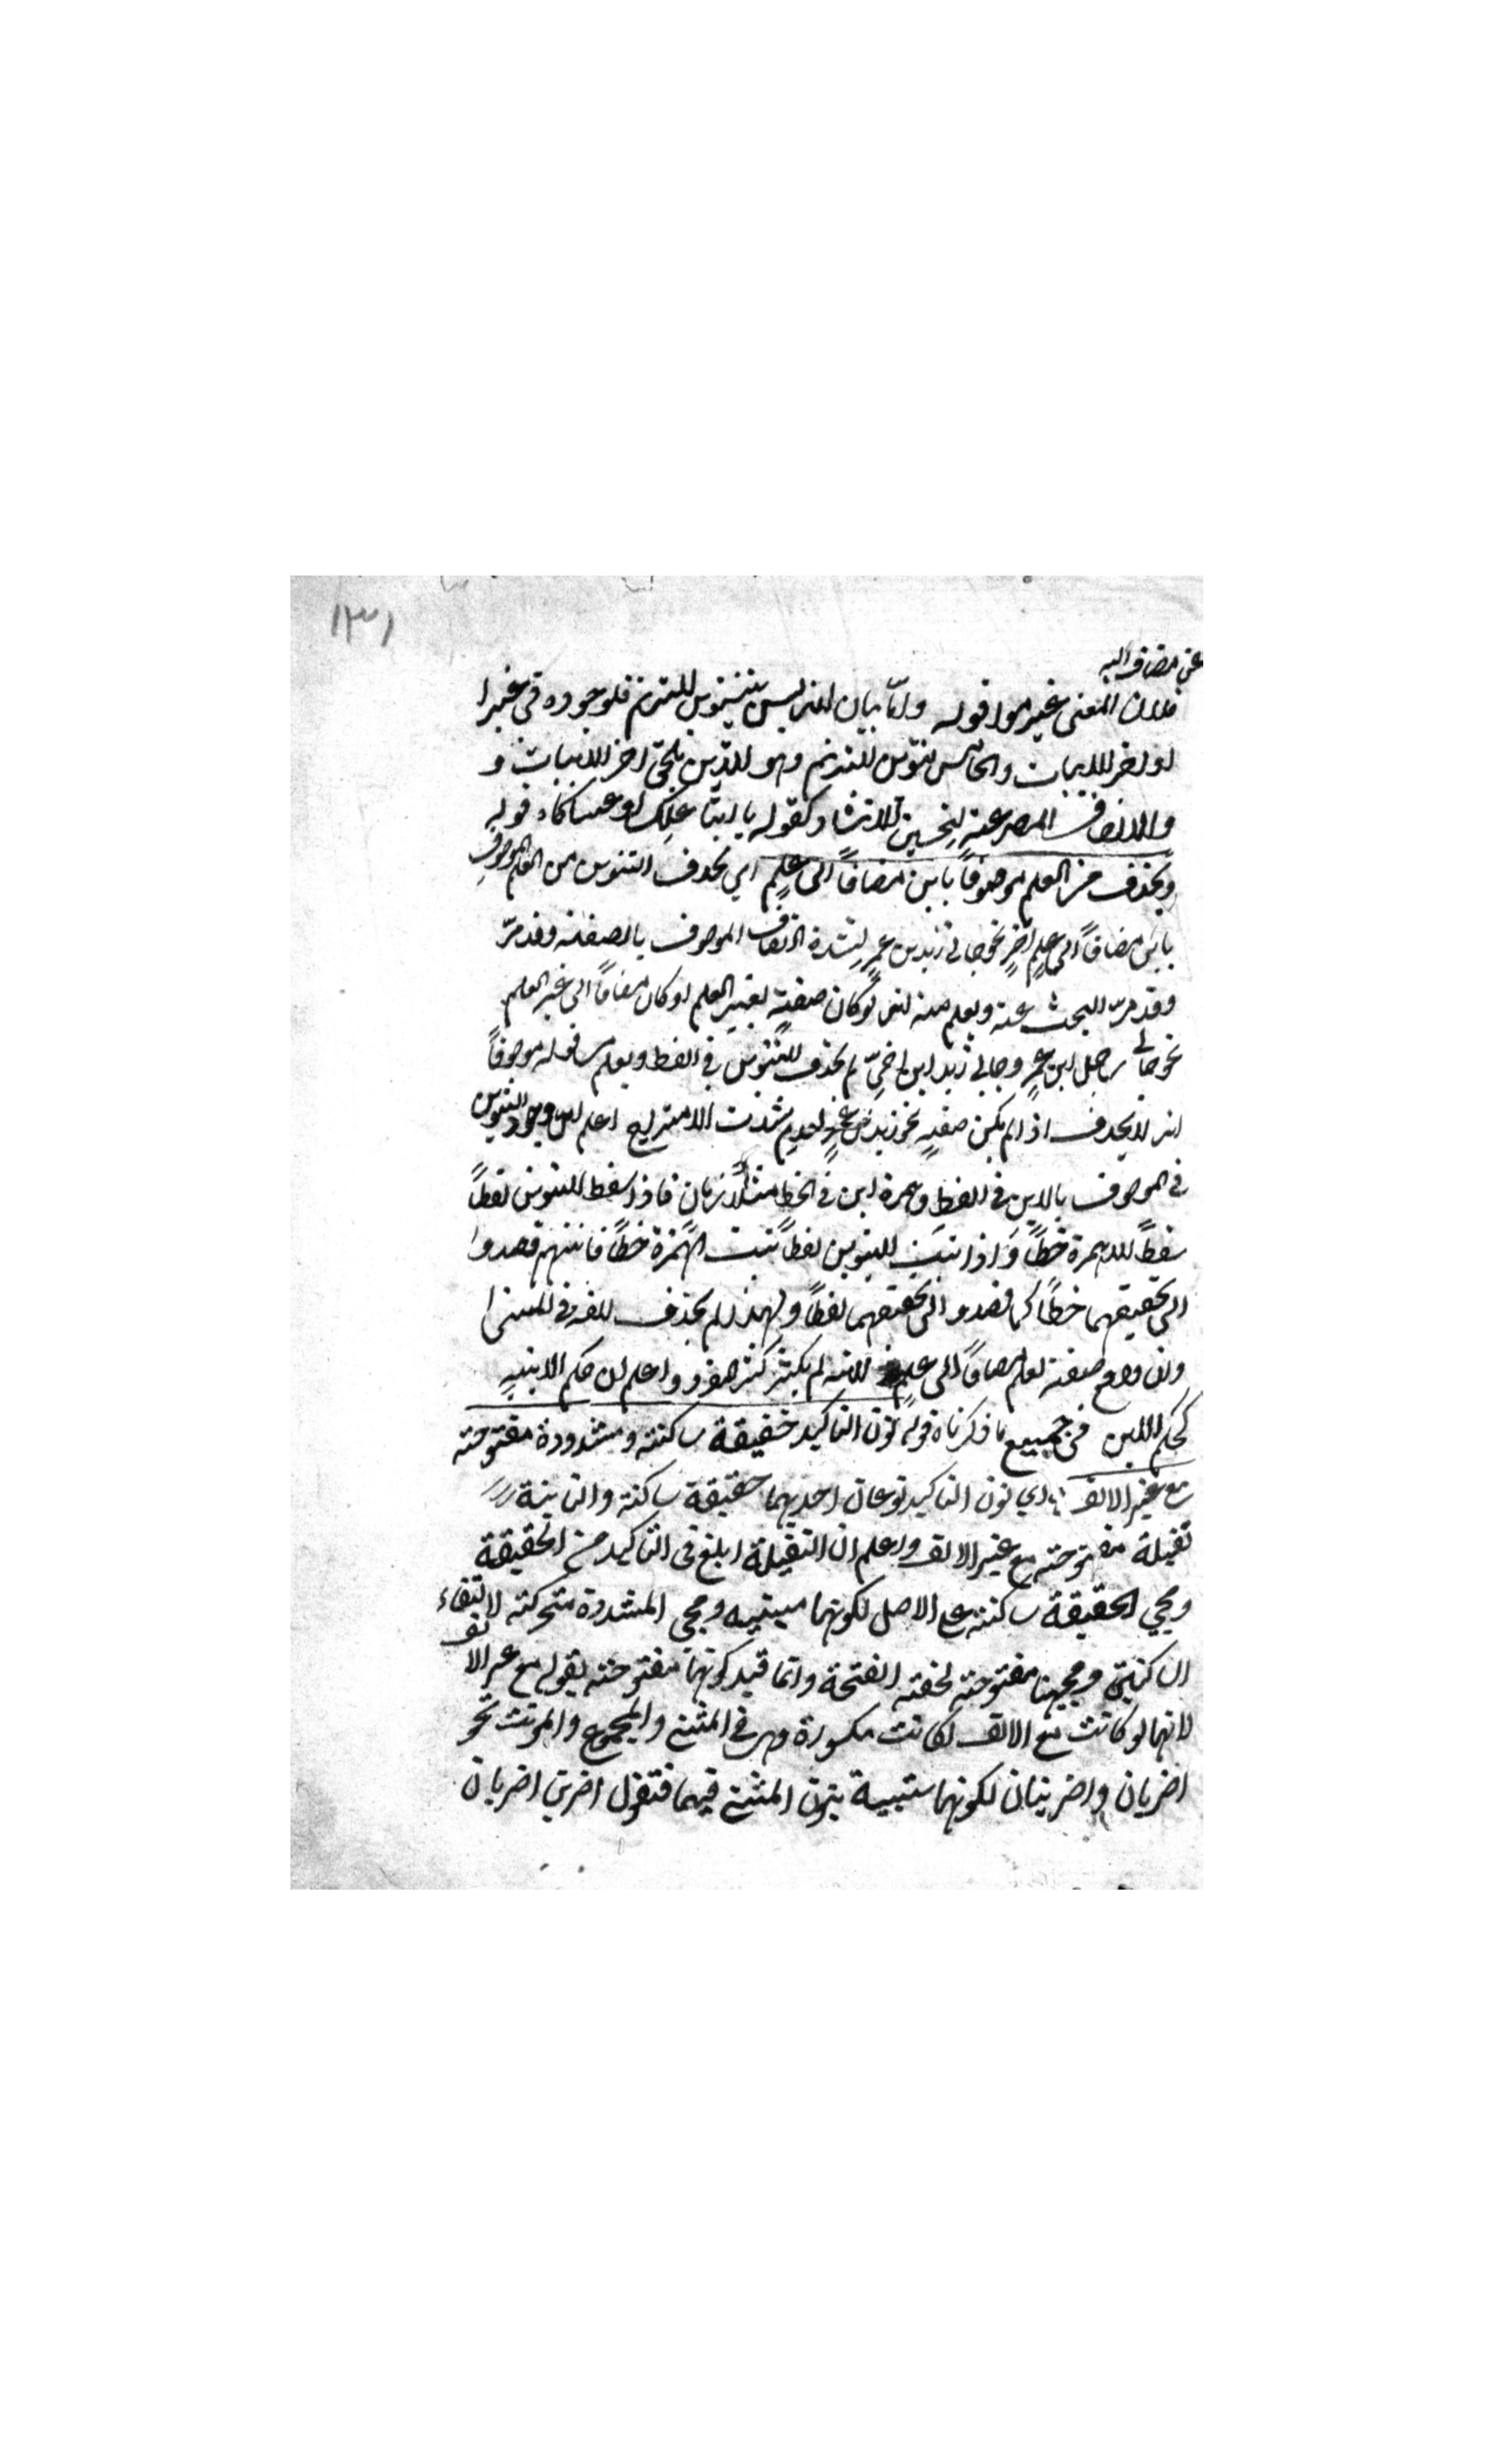 ١٣١
عن مضاف اليه
فلان المعنى غير موافق له واما بيان انه ليس بتنوين الترنم فلوجوده في غير
اواخر الابيات والخامس تنوين الترنم وهو الذي يلحق اخر الابيات و
والانصاف المصرعة لتحسين الانشاد كقوله يا ابتا علك او عساكا قوله
ويحذف من العلم موصوفاً بابن مضافاً الى علم اي يحذف التنوين من العلم الموصوف
بابن مضافاً الى علم اخر نحو جاني زيد بن عمر لشدة اتصاف الموصوف بالصفة وقد مرّ
وقد مر البحث عنه ويعلم منه انه لو كان صفة لغير العلم او كان مضافاً الى غير العلم
نحو جاني رجل ابن عمر وجاني زيد ابن اخي لم يحذف التنوين في اللفظ ويعلم من قوله موصوفاً
انه لا يحذف اذا لم يكن صفة نحو زيد ابن عمر لعدم شدت الامتزاج اعلم ان وجود التنوين
في الموصوف بالابن في اللفظ وهمزة ابن في الخط متلازمان فاذا سقط التنوين لفظاً
سقط الهمزة خطاً واذا ثبت التنوين لفظاً ثبت الهمزة خطاً فانهم قصدوا
الى تخفيفهما خطاً كما قصدوا الى تخفيفهما لفظاً ولهذا لم يحذف الفه في المثنى
وان وقع صفة لعلم مضافاً الى علم لانه لم يكثر كثرة المفرد واعلم ان حكم الابنة
كحكم الابن في جميع ما ذكرناه قوله نون التاكيد خفيفة ساكنة ومشدودة مفتوحة
مع غير الالف اي نون التاكيد نوعان احديهما خفيفة ساكنة والثانية
ثقيلة مفتوحة مع غير الالف واعلم ان الثقيلة ابلغ في التاكيد من الخفيفة
ومجي الخفيفة ساكنة على الاصل لكونها مبنية ومجي المشددة متحركة لالتقاء
الساكنين ومجيها مفتوحة لخفة الفتحة وانما قيد كونها مفتوحة بقوله مع غير الالف
لانها لو كانت مع الالف لكانت مكسورة وهي في المثنى والمجموع والمونث نحو
اضربان واضربنان لكونها شبيهة بنون المثنى فيهما فتقول اضربن اضربان